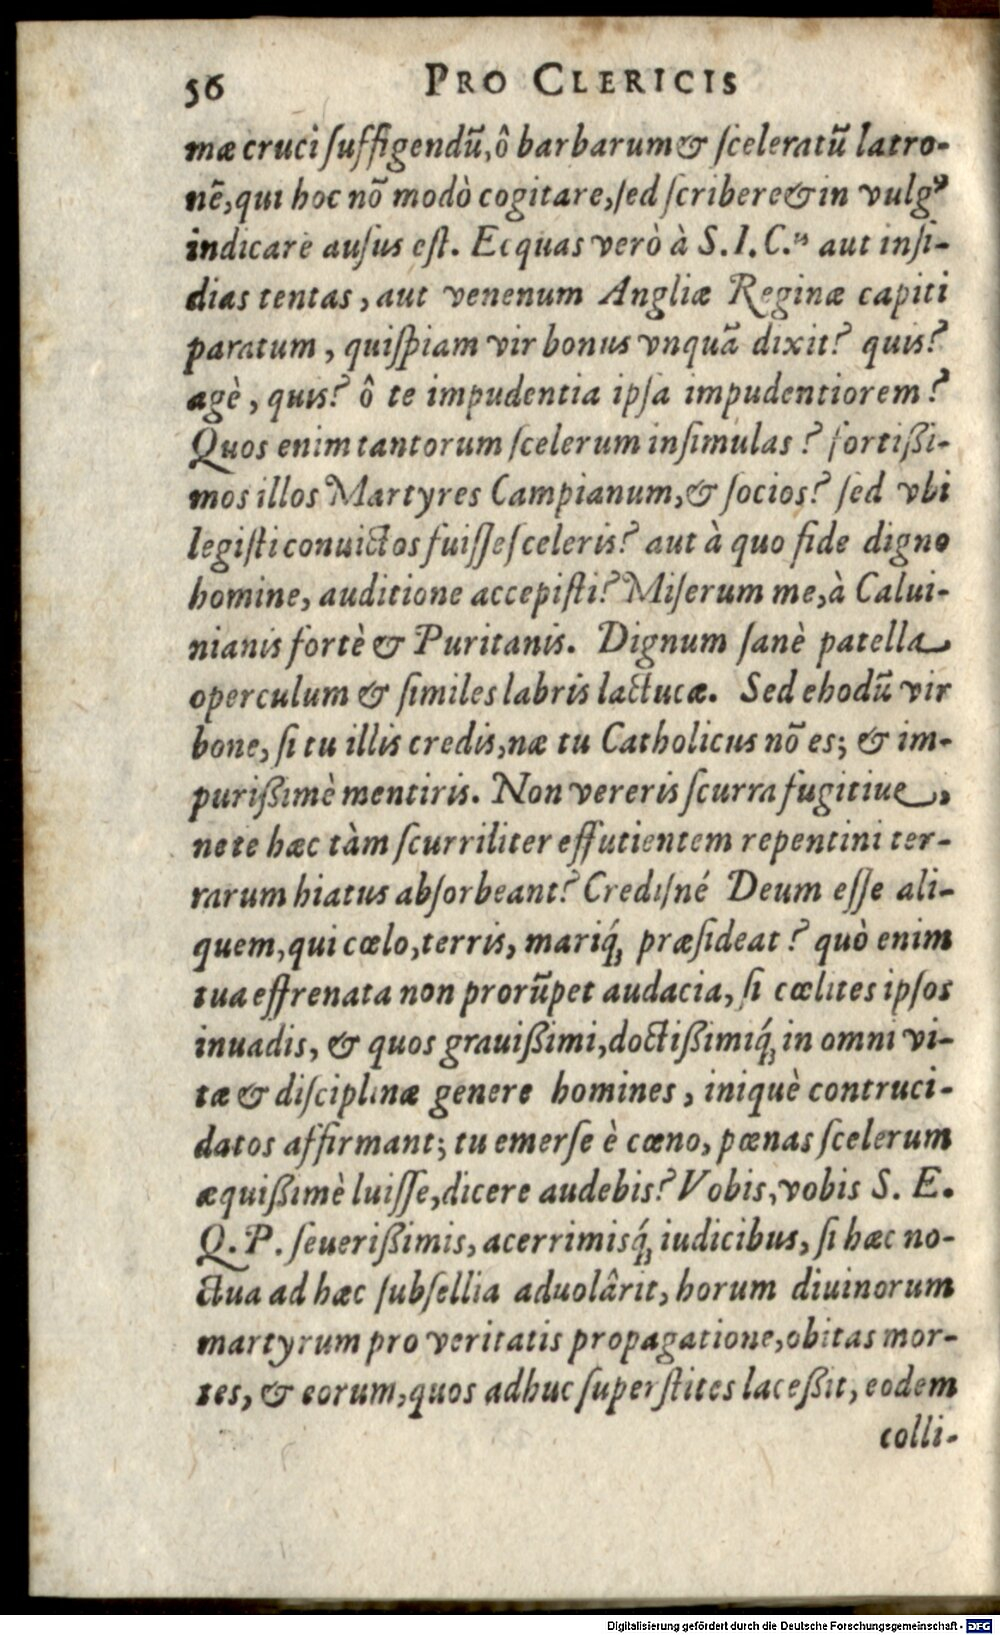 56 PRO CLERICIS
mæ cruci ſuffigendũ, ô barbarum & ſceleratũ latro-
nẽ, qui hoc nõ modò cogitare, ſed ſcribere & in vulgꝰ
indicare auſus eſt. Ecquas verò à S. I. C.ᵘˢ aut inſi-
dias tentas, aut venenum Angliæ Reginæ capiti
paratum, quiſpiam vir bonus vnquã dixit? quis?
agè, quis? ô te impudentia ipſa impudentiorem?
Quos enim tantorum ſcelerum inſimulas? fortißi-
mos illos Martyres Campianum, & ſocios? ſed vbi
legiſti conuictos fuiſſe ſceleris? aut à quo fide digno
homine, auditione accepiſti? Miſerum me, à Calui-
nianis fortè & Puritanis. Dignum ſanè patella
operculum & ſimiles labris lactucæ. Sed ehodũ vir
bone, ſi tu illis credis, næ tu Catholicus nõ es; & im-
purißimè mentiris. Non vereris ſcurra fugitiue,
ne te hæc tàm ſcurriliter effutientem repentini ter-
rarum hiatus abſorbeant? Crediſné Deum eſſe ali-
quem, qui cœlo, terris, mariq́; præſideat? quò enim
tua effrenata non prorũpet audacia, ſi cœlites ipſos
inuadis, & quos grauißimi, doctißimiq́; in omni vi-
tæ & diſciplinæ genere homines, iniquè contruci-
datos affirmant; tu emerſe è cœno, pœnas ſcelerum
æquißimè luiſſe, dicere audebis? Vobis, vobis S. E.
Q. P. ſeuerißimis, acerrimisq́; iudicibus, ſi hæc no-
ctua ad hæc ſubſellia aduolârit, horum diuinorum
martyrum pro veritatis propagatione, obitas mor-
tes, & eorum, quos adhuc ſuperſtites laceßit, eodem
colli-
Digitalisierung gefördert durch die Deutsche Forschungsgemeinschaft - DFG